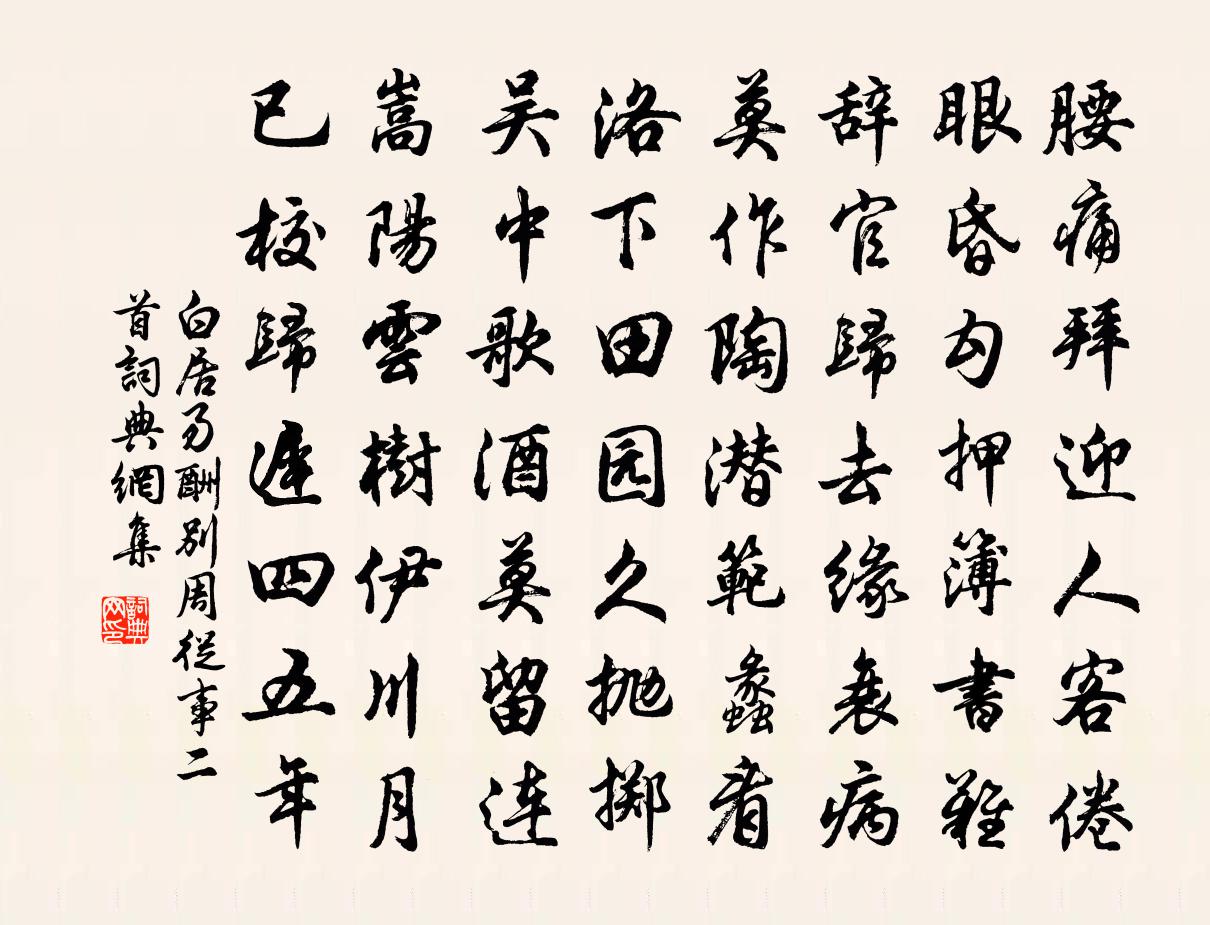 腰痛拜迎人客倦
眼昏勾押簿書難
辞官歸去缘衰病
莫作陶潜範蠡看
洛下田园久抛掷
吴中歌酒莫留连
嵩陽雲樹伊川月
已校歸遲四五年
白居易酬别周從事二
首詞典網集
詞典
网印